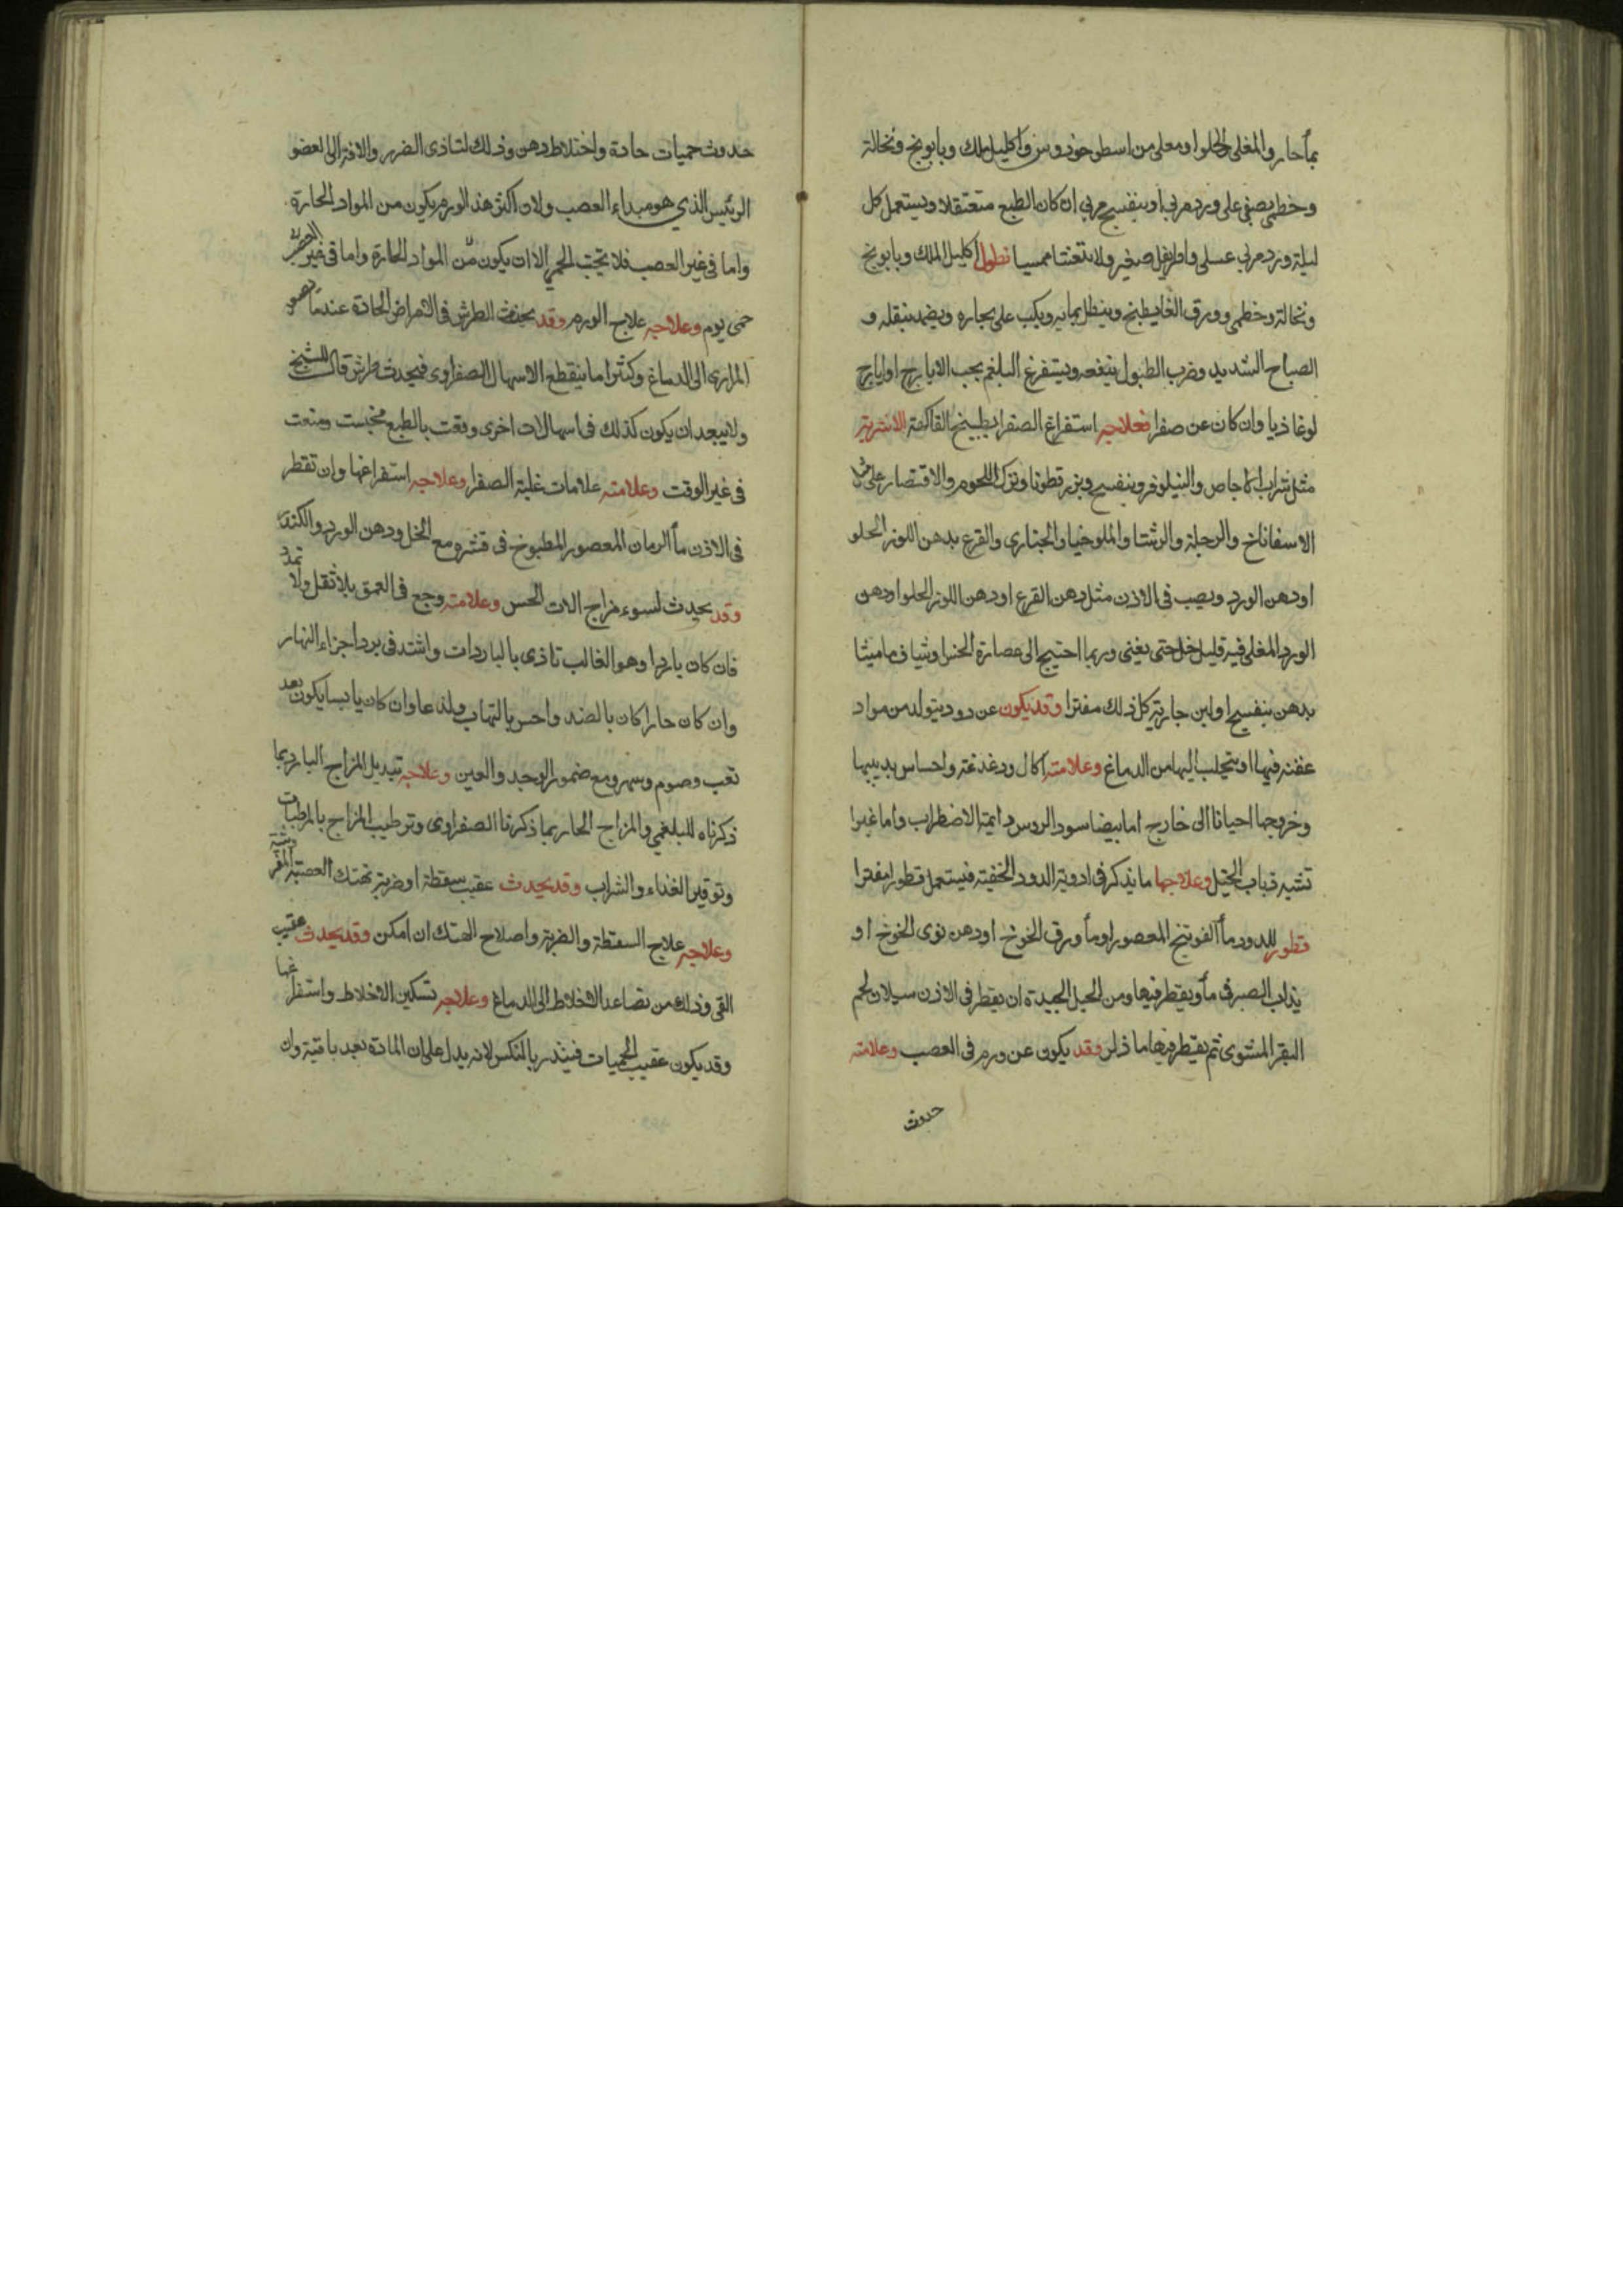 بمأحار والمغلى الحلوا ومعلى من اسطوخودوس واكليل ملك وبابونج ونخالة
وخطمى يصفى على ورد مربى او بنفسج مربى ان كان الطبع متعتقلا ويستعمل كل
ليلة ورد مربى عسلى واطريفل صغير ولا يتعشا ممسيا نطول اكليل الملك وبابونج
ونخالة وخطمى وورق الغار يطبخ وينطل بمايه ويكب على بخاره ويضمد بثفله و
الصياح الشديد وضرب الطبول ينفعه ويستفرغ البلغم بحب الايارج او ايارج
لوغاذيا وان كان عن صفرا فعلاجه استفراغ الصفرا بطبيخ الفاكهة الاشربة
مثل شراب الاجاص والنيلوفر وبنفسج وبزر قطونا وترك اللحوم والاقتصار على مثل
الاسفاناخ والرجلة والرشتا والملوخيا والخبازى والقرع بدهن اللوز الحلو
او دهن الورد ويصب فى الاذن مثل دهن القرع او دهن اللوز الحلو او دهن
الورد المغلى فيه قليل خل حتى يفنى وربما احتيج الى عصارة الخس او شياف ماميثا
بدهن بنفسج او لبن جارية كل ذلك مفترا وقد يكون عن دود يتولد من مواد
عفنه فيها او يتحلب اليها من الدماغ وعلامته اكال ودغدغه واحساس بدبيبها
وخروجها احيانا الى خارج اما بيضا سود الروس دايمة الاضطراب واما غبرا
تشبه ذباب الخيل وعلاجها ما يذكر فى ادوية الدود الخفية فيستعمل قطورا مفترا
قطور للدود مأ الفوتنج المعصور او مأ ورق الخوخ او دهن نوى الخوخ او
يذاب الصبر فى مأ ويقطر فيها ومن الحيل الجيدة ان يقطر فى الاذن سيلان لحم
البقر المشوى ثم يقطر فيها ما ذكر وقد يكون عن ورم فى العصب وعلامته
حدوث
حدوث حميات حادة واختلاط دهن وذلك لتاذى الضرر والافة الى العضو
الرئيس الذى هو مبداء العصب ولان اكثر هذ الورم يكون من المواد الحارة
واما فى غير العصب فلا تجب الحمى الا ان يكون من المواد الحارة واما فى غير العصب
حمى يوم وعلاجه علاج الورم وقد يحدث الطرش فى الامراض الحادة عند ما تصعد
المرار الى الدماغ وكثيرا ما ينقطع الاسهال الصفراوى فيحدث طرش قال الشيخ
ولا يبعد ان يكون كذلك فى اسهالات اخرى وقعت بالطبع فحبست ومنعت
فى غير الوقت وعلامته علامات غلبة الصفرا وعلاجه استفراغها وان تقطر
فى الاذن مأ الرمان المعصور المطبوخ فى قشره مع الخل ودهن الورد والكندر
وقد يحدث لسوء مزاج الات الحس وعلامته وجع فى العمق بلا ثقل ولا تمدد
فان كان باردا وهو الغالب تاذى بالباردات واشتد فى برد اجزاء النهار
وان كان حارا كان بالضد واحس بالتهاب ولذعا وان كان يابسا يكون بعد
تعب وصوم وسهر ومع ضمور الوجه والعين وعلاجه تبديل المزاج البارد بما
ذكرناه للبلغمى والمزاج الحار بما ذكرنا الصفراوى وترطيب المزاج بالمرطبات
وتوفير الغذاء والشراب وقد يحدث عقيب سقطة او ضربة تهتك العصبة
وعلاجه علاج السقطة والضربة واصلاح الهتك ان امكن وقد يحدث عقيب
القى وذلك من تصاعد الاخلاط الى الدماغ وعلاجه تسكين الاخلاط واستفراغها
وقد يكون عقيب الحميات فينذر بالنكس لانه يدل على ان المادة بعد باقية وان